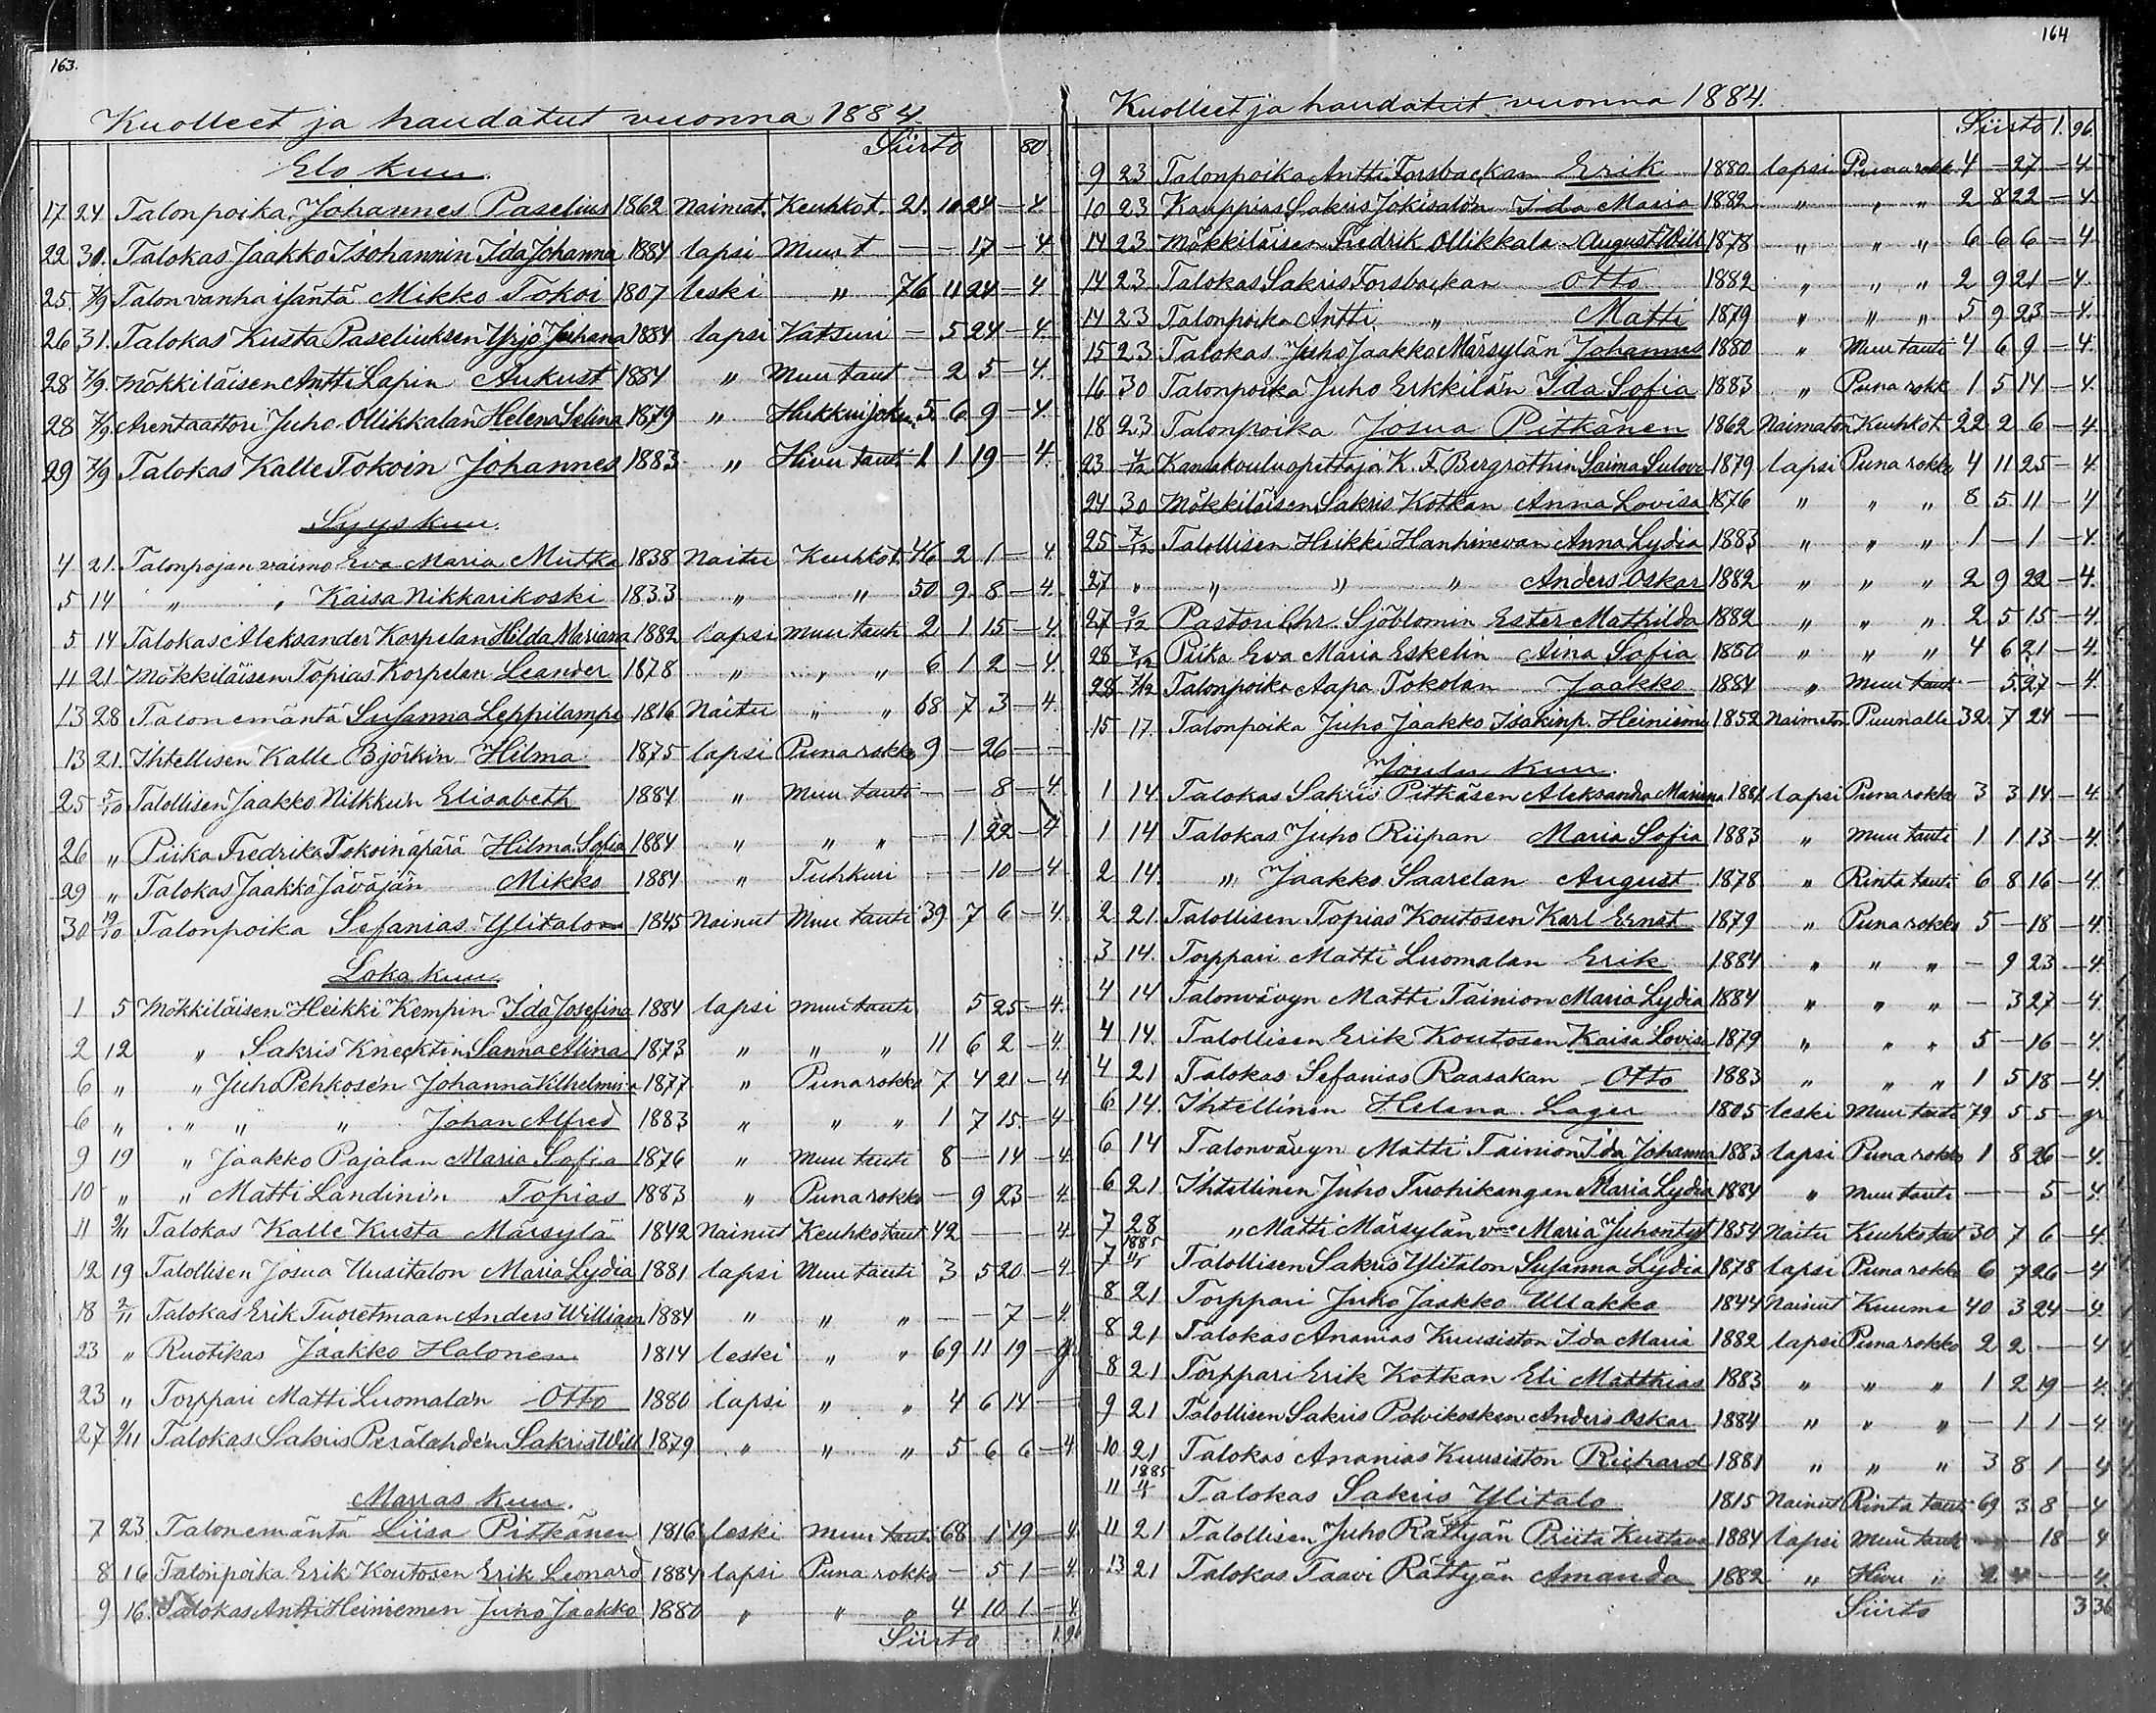 163.
Kuolleet ja haudatut vuonna 1884
Siirto 80
Elo kuu.
17 24 Talonpoika Johannes Paselius 1862 Naimat. Keuhkot. 21. 10 24 — 4.
22 31. Talokas Jaakko Isohannin Ida Johanna 1884 lapsi Muut — — 17 — 4
25. 7/9 Talon vanha isäntä Mikko Tokoi 1807 leski " 76 11 24 — 4.
26 31. Talokas Kusta Paseliuksen Yrjö Juhana 1884 lapsi Katsuri — 5 24 — 4.
28 7/9. Mökkiläisen Antti Lapin Aukust 1884 " Muu taut — 2 5 — 4.
28 7/9 Arentaattori Juho Ollikkalan Helena Selina 1879 " 5 6 9 — 4
29 7/9 Talokas Kalle Tokoin Johannes 1883 " Hivu tauti 1 1 19 — 4.
Syys kuu.
4 21. Talonpojan vaimo Eva Maria Mutka 1838 Naitu Keuhkot. 46 2 1 — 4
5 14 " " Kaisa Nikkarikoski 1833 " " 50 9 8 — 4.
5 14 Talokas Aleksander Korpelan Hilda Mariana 1882 lapsi Muu tauti 2 1 15 — 4.
11 21 Mökkiläisen Topias Korpelan Leander 1878 " " " 6 1 2 — 4.
13 28 Talon emäntä Susanna Leppilampi 1816 Naitu " " 68 7 3 — 4.
13 21. Ihtellisen Kalle Björkin Hilma 1875 lapsi Puna rokko 9 — 26 — —
25 5/10 Talollisen Jaakko Nilkku'n Elisabeth 1884 " Muu tauti — — 8 — 4.
26 " Piika Fredrika Tokoin äpärä Hilma Sofia 1884 " " " — 1 22 — 4
29 " Talokas Jaakko Jäväjän Mikko 1884 " Tuhkuri — — 10 — 4
30 19/10 Talonpoika Sefanias Ylitalo 1845 Nainut Muu tauti 39 7 6 — 4.
Loka kuu
1 5 Mökkiläisen Heikki Kempin Ida Josefina 1884 lapsi Muu tauti 5 25 — 4.
2 12 " Sakris Knecktin Sanna Alina 1873 " " " 11 6 2 — 4.
6 " " Juho Pehkose'n Johanna Vilhelmina 1877 " Puna rokko 7 4 21 — 4
6 " " " " Johan Alfred 1883 " " " 1 7 15 — 4
9 19 " Jaakko Pajalan Maria Sofia 1876 " Muu tauti 8 — 14 — 4.
10 " " Matti Landini'n Topias 1883 " Puna rokko — 9 23 — 4.
11 2/11 Talokas Kalle Kusta Märsylä 1842 Nainut Keuhkotaut 42 — — — 4
12 19 Talollisen Josua Uusitalon Maria Lydia 1881 lapsi Muu tauti 3 5 20 — 4
18 2/11 Talokas Erik Tuoretmaan Anders William 1884 " " " — — 7 — 4.
23 " Ruotikas Jaakko Halonen 1814 leski " " 69 11 19 — gr
23 " Torppari Matti Luomala'n Otto 1880 lapsi " " 4 6 14 —
27 2/11 Talokas Sakris Perälahde'n Sakris Will 1879 " " " 5 6 6 — 4
Marras kuu.
7 23 Talon emäntä Liisa Pitkänen 1816 leski Muu tauti 68 1 19 — 4.
8 16 Talonpoika Erik Koutosen Erik Leonard 1884 lapsi Puna rokko — 5 1 — 4.
9 16. Talokas Antti Heiniemen Juho Jaakko 1880 " " " 4 10 1 — 4.
Siirto 1.96
164
Kuolleet ja haudatut vuonna 1884.
Siirto 1. 96.
9 23 Talonpoika Antti Forsbackan Erik 1880 lapsi Puna rokk 4 — 27 — 4
10 23 Kauppias Sakris Jokisalo'n Ida Maria 1882 " " " 2 8 22 — 4.
14 23 Mökkiläisen Fredrik Ollikkala August Will 1878 " " " 6 6 6 — 4
14 23 Talokas Sakris Forsbackan Otto 1882 " " " 2 9 21 — 4.
14 23 Talonpoika Antti " Matti 1879 " " " 5 9 23 — 4.
15 23 Talokas Juho Jaakko Märsylän Johannes 1880 " Muu tauti 4 6 9 — 4.
16 30 Talonpoika Juho Erkkilän Ida Sofia 1883 " Puna rokk 1 5 14 — 4.
18 23 Talonpoika Josua Pitkänen 1862 Naimaton Keuhkot 22 2 6 — 4.
23 7/12 Kansakoulu opettaja K. F. Bergrothin Saima Sulovi 1879 lapsi Puna rokko 4 11 25 — 4.
24 30 Mökkiläisen Sakris Kotkan Anna Lovisa 1876 " " " 8 5 11 — 4
25 7/12 Talollisen Heikki Hanhinevan Anna Lydia 1883 " " " 1 — 1 — 4.
27 " " " " Anders Oskar 1882 " " " 2 9 22 — 4.
27 9/12 Pastori Chr. Sjöblomin Ester Mathilda 1882 " " " 2 5 15 — 4.
28 7/12 Piika Eva Maria Eskelin Aina Sofia 1880 " " " 4 6 21 — 4
28 7/12 Talonpoika Aapa Tokolan Jaakko 1884 " Muu tauti — 5 27 — 4.
15 17. Talonpoika Juho Jaakko Isakinp. Heiniemi 1852 Naimaton Puun alle 32. 7 24 —
Joulu kuu.
1 14. Talokas Sakris Pitkäsen Aleksandra Mariana 1881 lapsi Puna rokko 3 3 14 — 4.
1 14 Talokas Juho Riipan Maria Sofia 1883 " Muu tauti 1 1 13 — 4.
2 14. " Jaakko Saarelan August 1878 " Rinta tauti 6 8 16 — 4.
2 21. Talollisen Topias Koutosen Karl Ernst 1879 " Puna rokko 5 — 18 — 4.
3 14. Torppari Matti Luomalan Erik 1884 " " " — 9 23 — 4.
4 14 Talonvävyn Matti Tainion Maria Lydia 1884 " " " — 3 27 — 4.
4 14. Talollisen Erik Koutosen Kaisa Lovisa 1879 " " " 5 — 16 — 4.
4 21 Talokas Sefanias Raasakan Otto 1883 " " " 1 5 18 — 4.
6 14. Ihtellinen Helena Lager 1805 leski Muu tauti 79 5 5 — gr
6 14 Talonvävyn Matti Tainion Ida Johanna 1883 lapsi Puna rokko 1 8 26 — 4.
6 21 Ihtellinen Juho Tuohikangan Maria Lydia 1884 " Muu tauti — — 5 — 4.
7 28 " Matti Märsylän vmo Maria Juhontyt 1854 Naitu Keuhkotaut 30 7 6 — 4.
1885
7 11/1 Talollisen Sakris Ylitalon Susanna Lydia 1878 lapsi Puna rokko 6 7 26 — 4
8 21 Torppari Juho Jaakko Ullakko 1844 Nainut Kuume 40 3 24 — 4.
8 21 Talokas Ananias Kuusiston Ida Maria 1882 lapsi Puna rokko 2 2 — — 4
8 21 Torppari Erik Kotkan Eli Matthias 1883 " " " 1 2 19 — 4.
9 21 Talollisen Sakris Polvikosken Anders Oskar 1884 " " " — 1 1 — 4
10 21 Talokas Ananias Kuusiston Richard 1881 " " " 3 8 1 — 4
1885
11 11/1 Talokas Sakris Ylitalo 1815 Nainut Rinta tauti 69 3 8 — 4
11 21 Talollisen Juho Rättyän Priita Kustava 1884 lapsi Muu tauti — — 18 — 4
13 21 Talokas Taavi Rättyän Amanda 1882 " Hivu " 2 4 — — 4.
Siirto 3 36